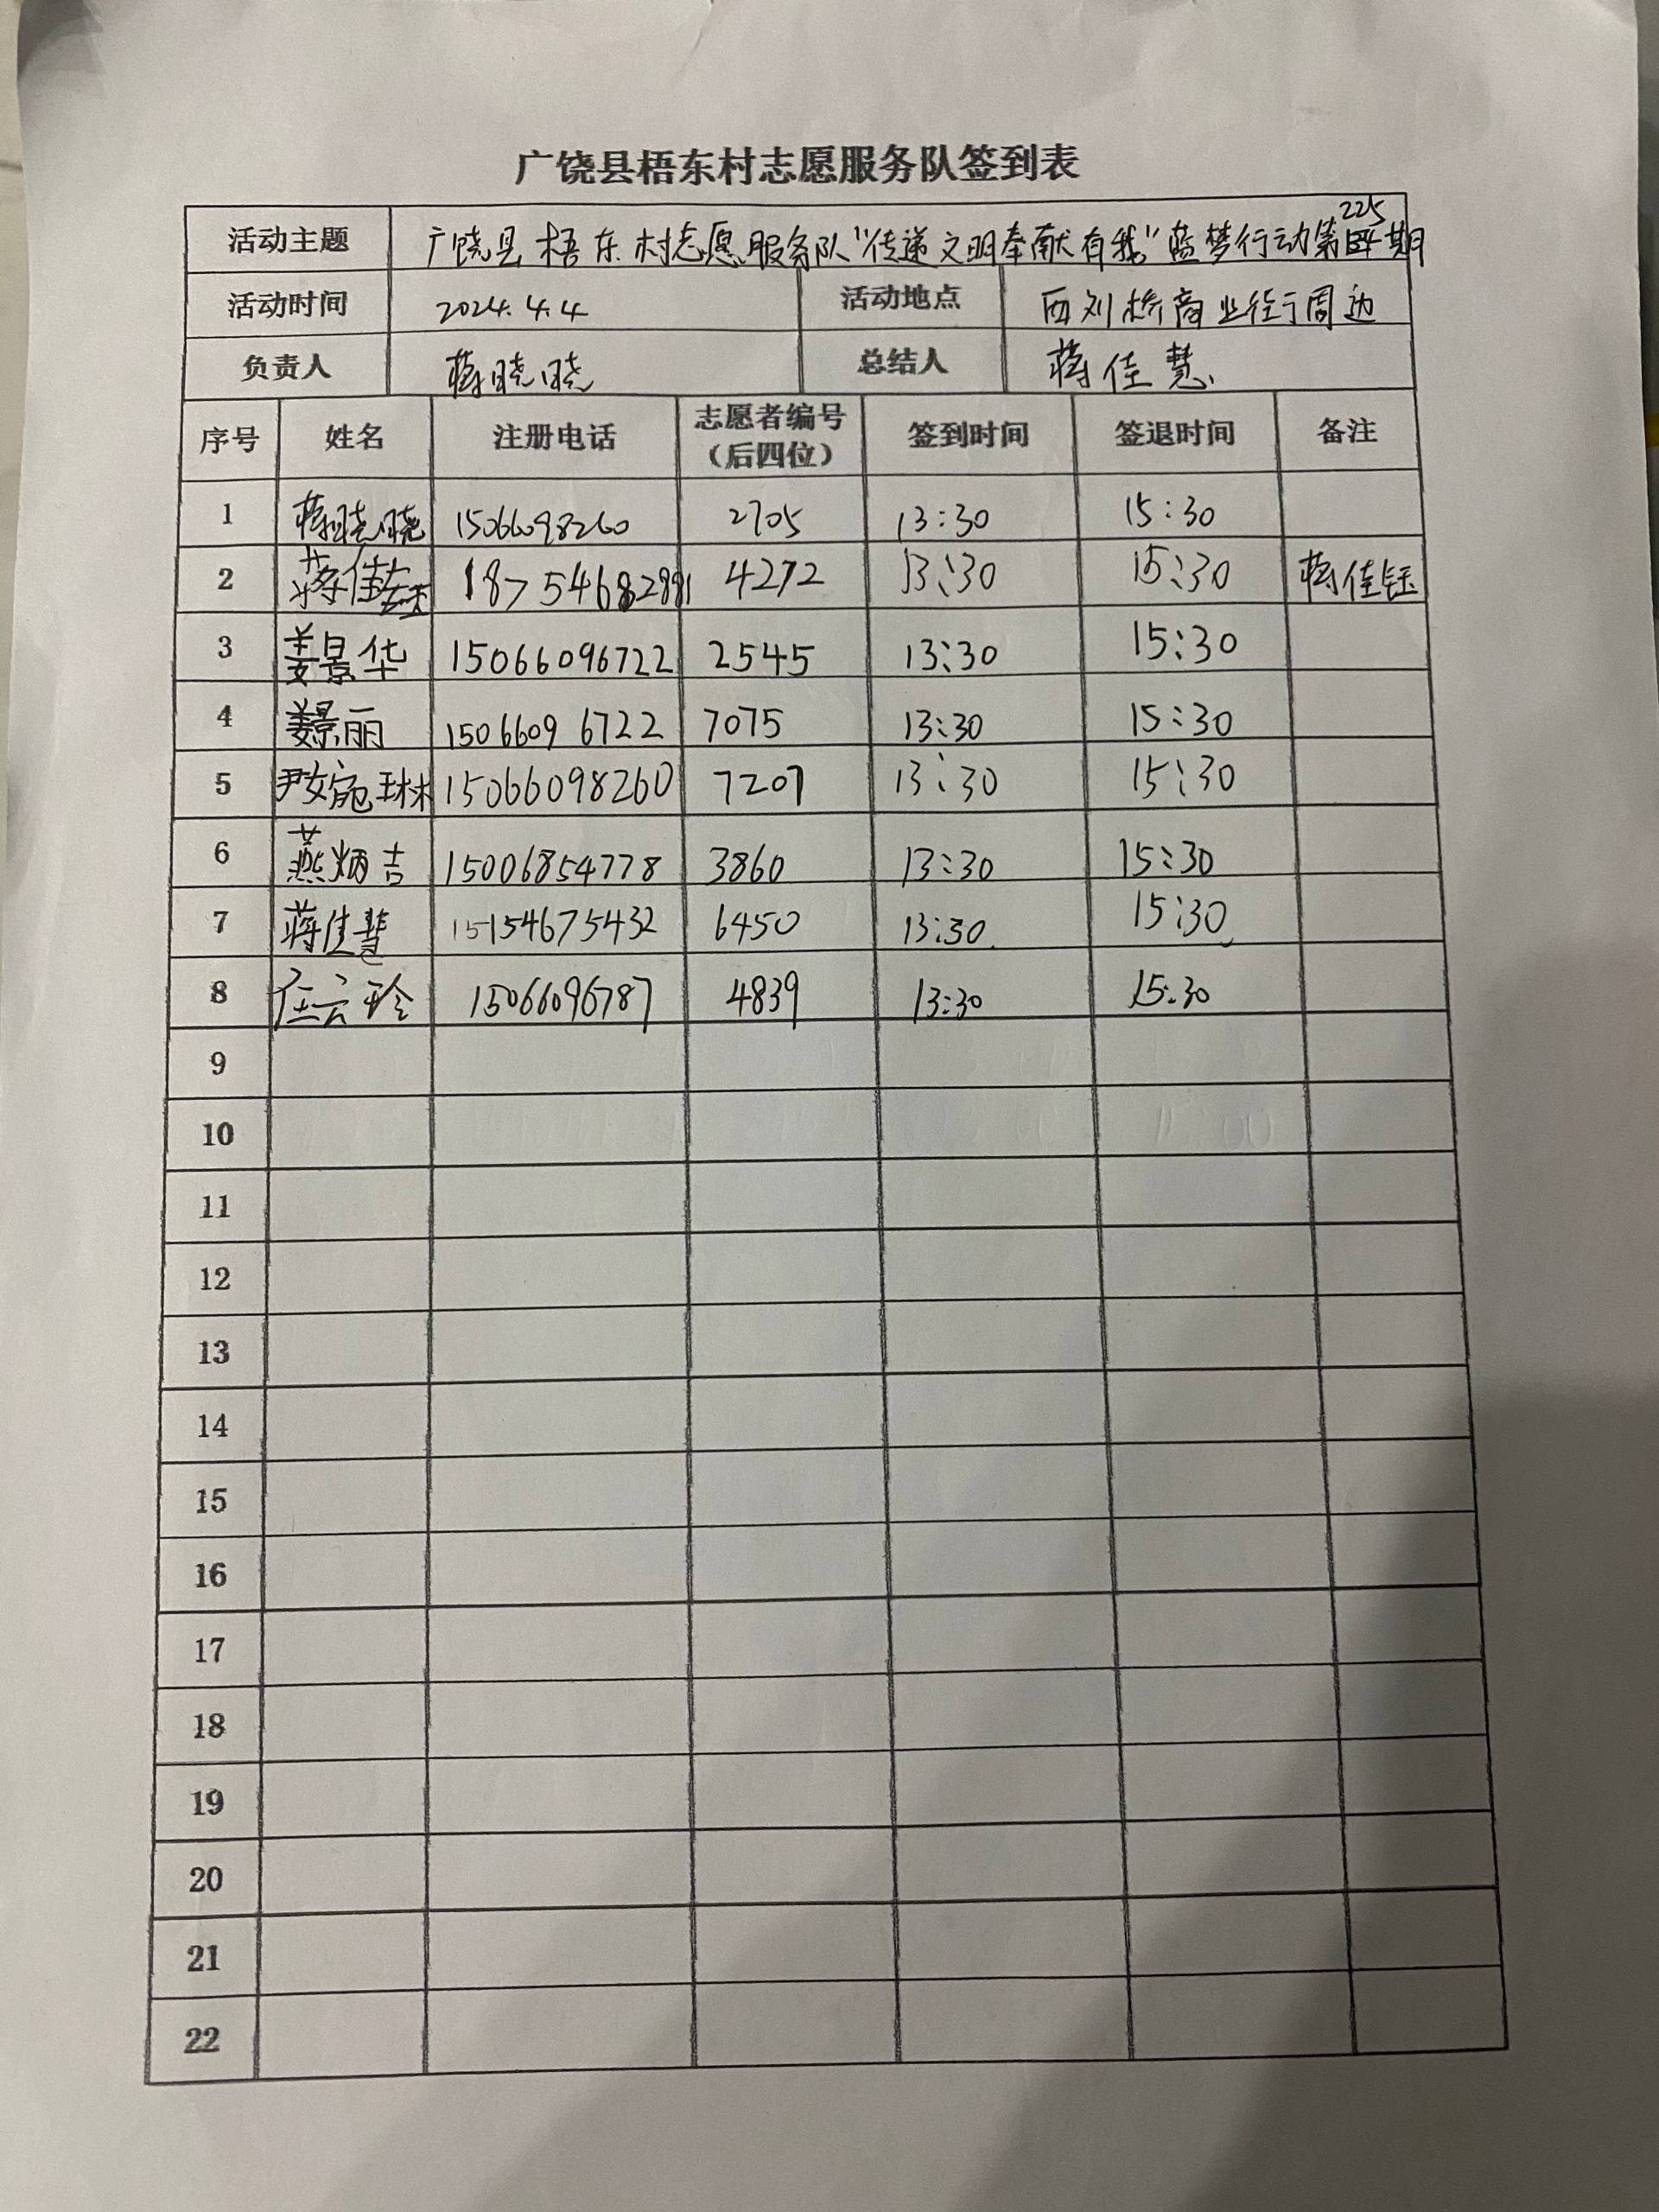 广饶县梧东村志愿服务队签到表
活动主题 广饶县梧东村志愿服务队"传递文明奉献有我"蓝梦行动第225期
活动时间 2024.4.4 活动地点 西刘桥商业街周边
负责人 蒋晓晓 总结人 蒋佳慧
序号 姓名 注册电话 志愿者编号（后四位） 签到时间 签退时间 备注
1 蒋晓晓 15066098260 2705 13:30 15:30
2 蒋佳钰 4272 13:30 15:30 蒋佳钰
3 姜景华 15066096722 2545 13:30 15:30
4 姜景丽 15066096722 7075 13:30 15:30
5 尹 琳 15066098260 7207 13:30 15:30
6 燕炳吉 15006854778 3860 13:30 15:30
7 蒋佳慧 15154675432 6450 13:30 15:30
8 任云玲 15066096787 4839 13:30 15:30
9
10
11
12
13
14
15
16
17
18
19
20
21
22